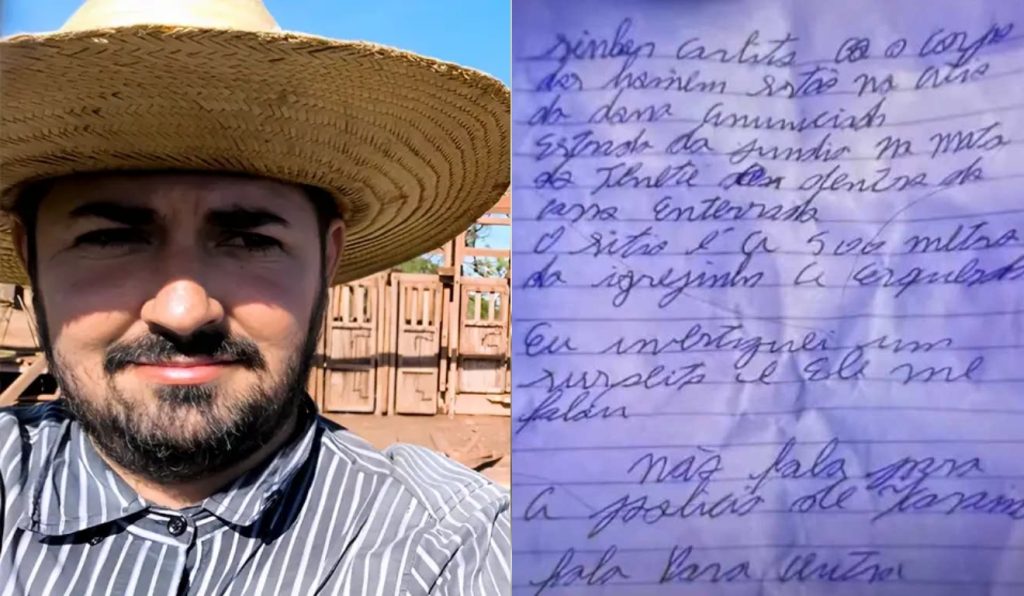 carlito o corpo
dos homem estão no citio
da dona anunciada
Estrada da na mata
do Tenete dentro da
casa Enterrado
O sitio é a 500 metro
da igrejinha a esquerda
Eu investiguei um
suspeito e Ele me
falou
não fala para
a policia de
fala Para outra